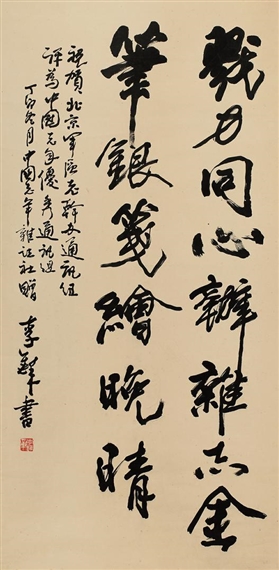 戮力同心辦雜志金
筆銀箋繪晚晴
祝賀北京軍區老幹部通訊組
評為中國老年優秀通訊組
丁卯冬月中國老年雜誌社贈
李鐸書